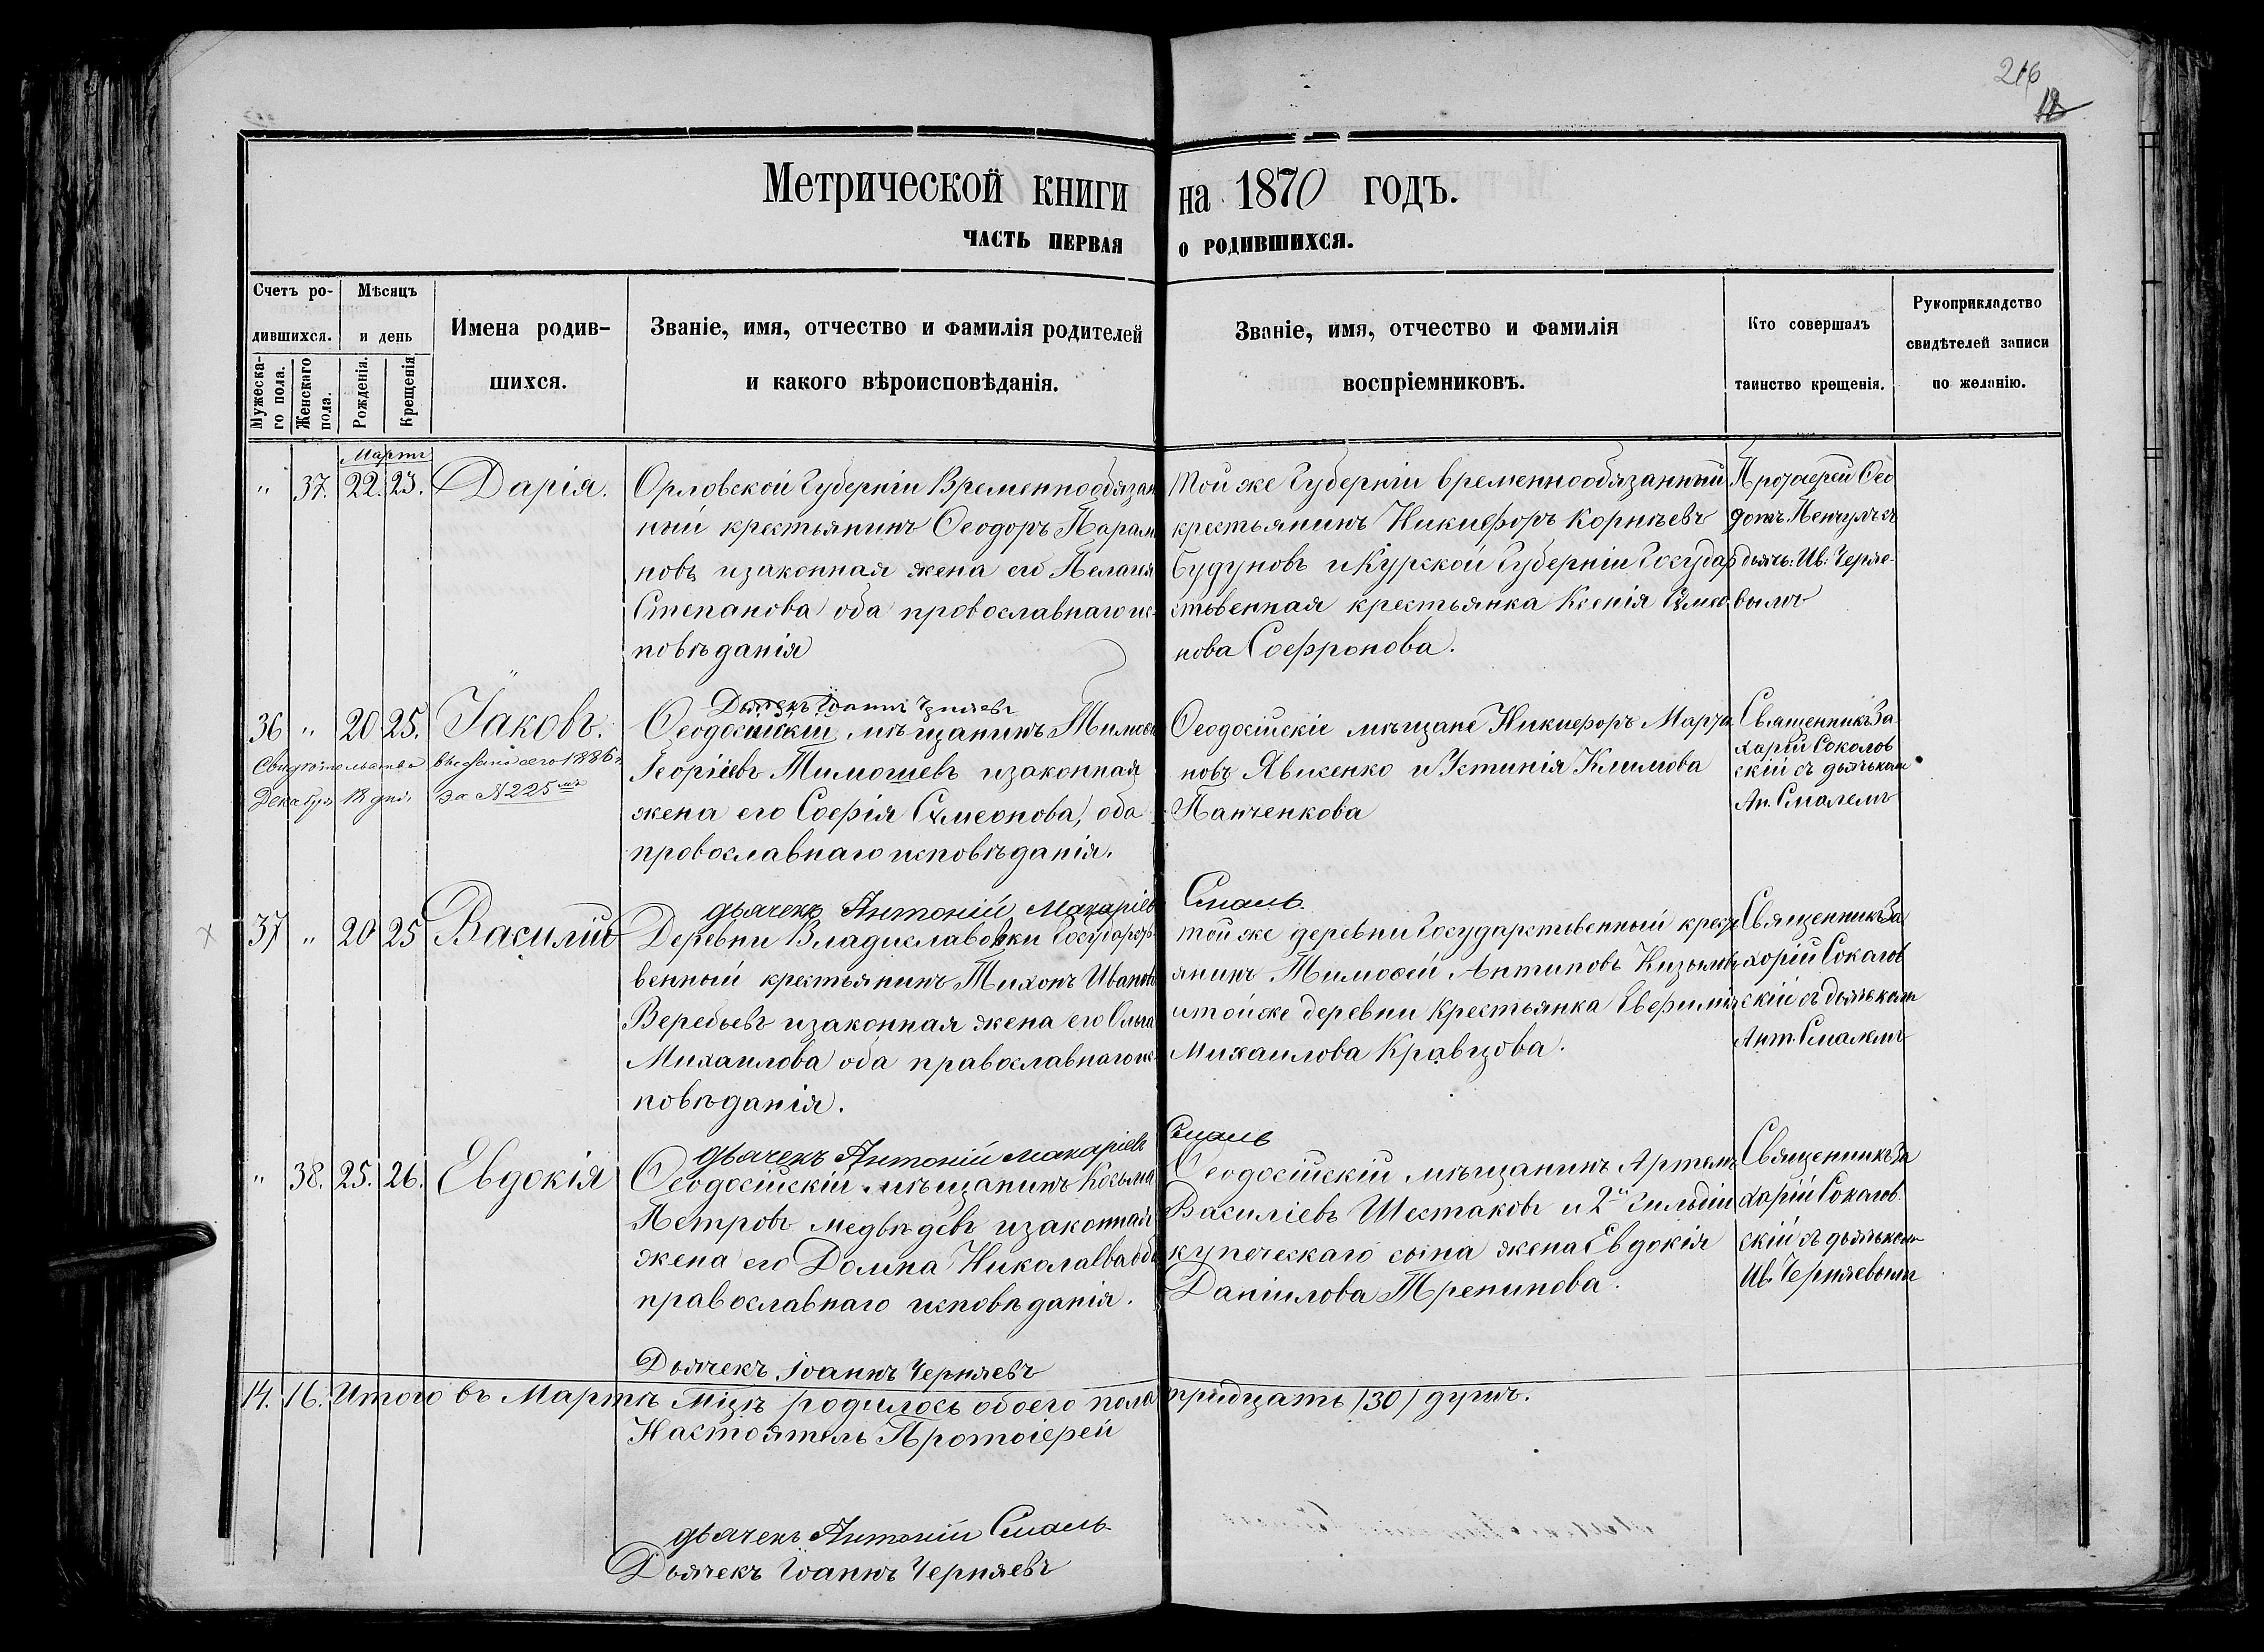 216
12
Метрической книги на 1870 годъ.
ЧАСТЬ ПЕРВАЯ О РОДИВШИХСЯ.
Счетъ ро-
дившихся.
Мужеска-
го пола.
Женскаго
пола.
Мѣсяцъ
и день
Рожденія.
Крещенія
Имена родив-
шихся.
Званіе, имя, отчество и фамилія родителей
и какого вѣроисповѣданія.
Званіе, имя, отчество и фамилія
воспріемниковъ.
Кто совершалъ
таинство крещенія.
Рукоприкладство
свидѣтелей записи
по желанію.
Мартъ
" 37. 22. 23. Дарія.
Орловской Губерніи Временнообязан
ный крестьянинъ Ѳеодоръ Парам
новъ и законная жена его Пелагія
Степанова оба провославнаго ис-
повѣданія
Дьячекъ Іоаннъ Черняевъ
той же Губерніи временнообязанный
крестьянинъ Никифоръ Корнѣевъ
Будуновъ и Курской Губерніи Государ
ственная крестьянка Ксенія Сѵмео
нова Софронова.
Протоіерей Ѳео
дьячк: Ив: Черня-
вымъ
36 " 20 25. Іаковъ.
Свидѣтельство выдано сего 1886 г.
Декабря 12 дня, за № 225
Ѳеодосійскій мѣщанинъ Тимоѳей
Георгіевъ Тимошевъ и законная
жена его Софія Сѵмеонова, оба
провославнаго исповѣданія.
дьячекъ Антоній Макаріевъ Смаль
Ѳеодосійскіе мѣщане Никифоръ Марты
новъ Явисенко и Устинія Климова
Панченкова
Священникъ За
харій Соколов
скій съ дьячкомъ
Ан. Смалемъ
37 " 20 25 Василій
Деревни Владиславовки Государст
венный крестьянинъ Тихонъ Ивановъ
Веребьевъ и законная жена его Ольга
Михаилова оба православнаго ис-
повѣданія.
дьячекъ Антоній Макаріевъ Смаль
той же деревни Государственный крест
янинъ Тимоѳей Антиповъ
и той же деревни Крестьянка Евфимія
Михаилова Кравцова.
Священникъ За
харій Соколов
скій съ дьячкомъ
Ант. Смалемъ
" 38. 25. 26. Евдокія
Ѳеодосійскій мѣщанинъ Косьма
Петровъ Медвѣдевъ и законная
жена его Домна Николаева оба
православнаго исповѣданія.
Дьячекъ Іоаннъ Черняевъ
Ѳеодосійскій мѣщанинъ Артемъ
Василіевъ Шестаковъ и 2й Гильдіи
купеческаго сына жена Евдокія
Даніилова Трепинова.
Священникъ За
харій Соколов
скій съ дьячкомъ
Ив. Черняевымъ
14. 16. Итого въ Мартѣ Мцѣ родилось обоего пола тридцать /30/ душъ.
Настоятель Протоіерей
дьячекъ Антоній Смаль
Дьячекъ Іоаннъ Черняевъ